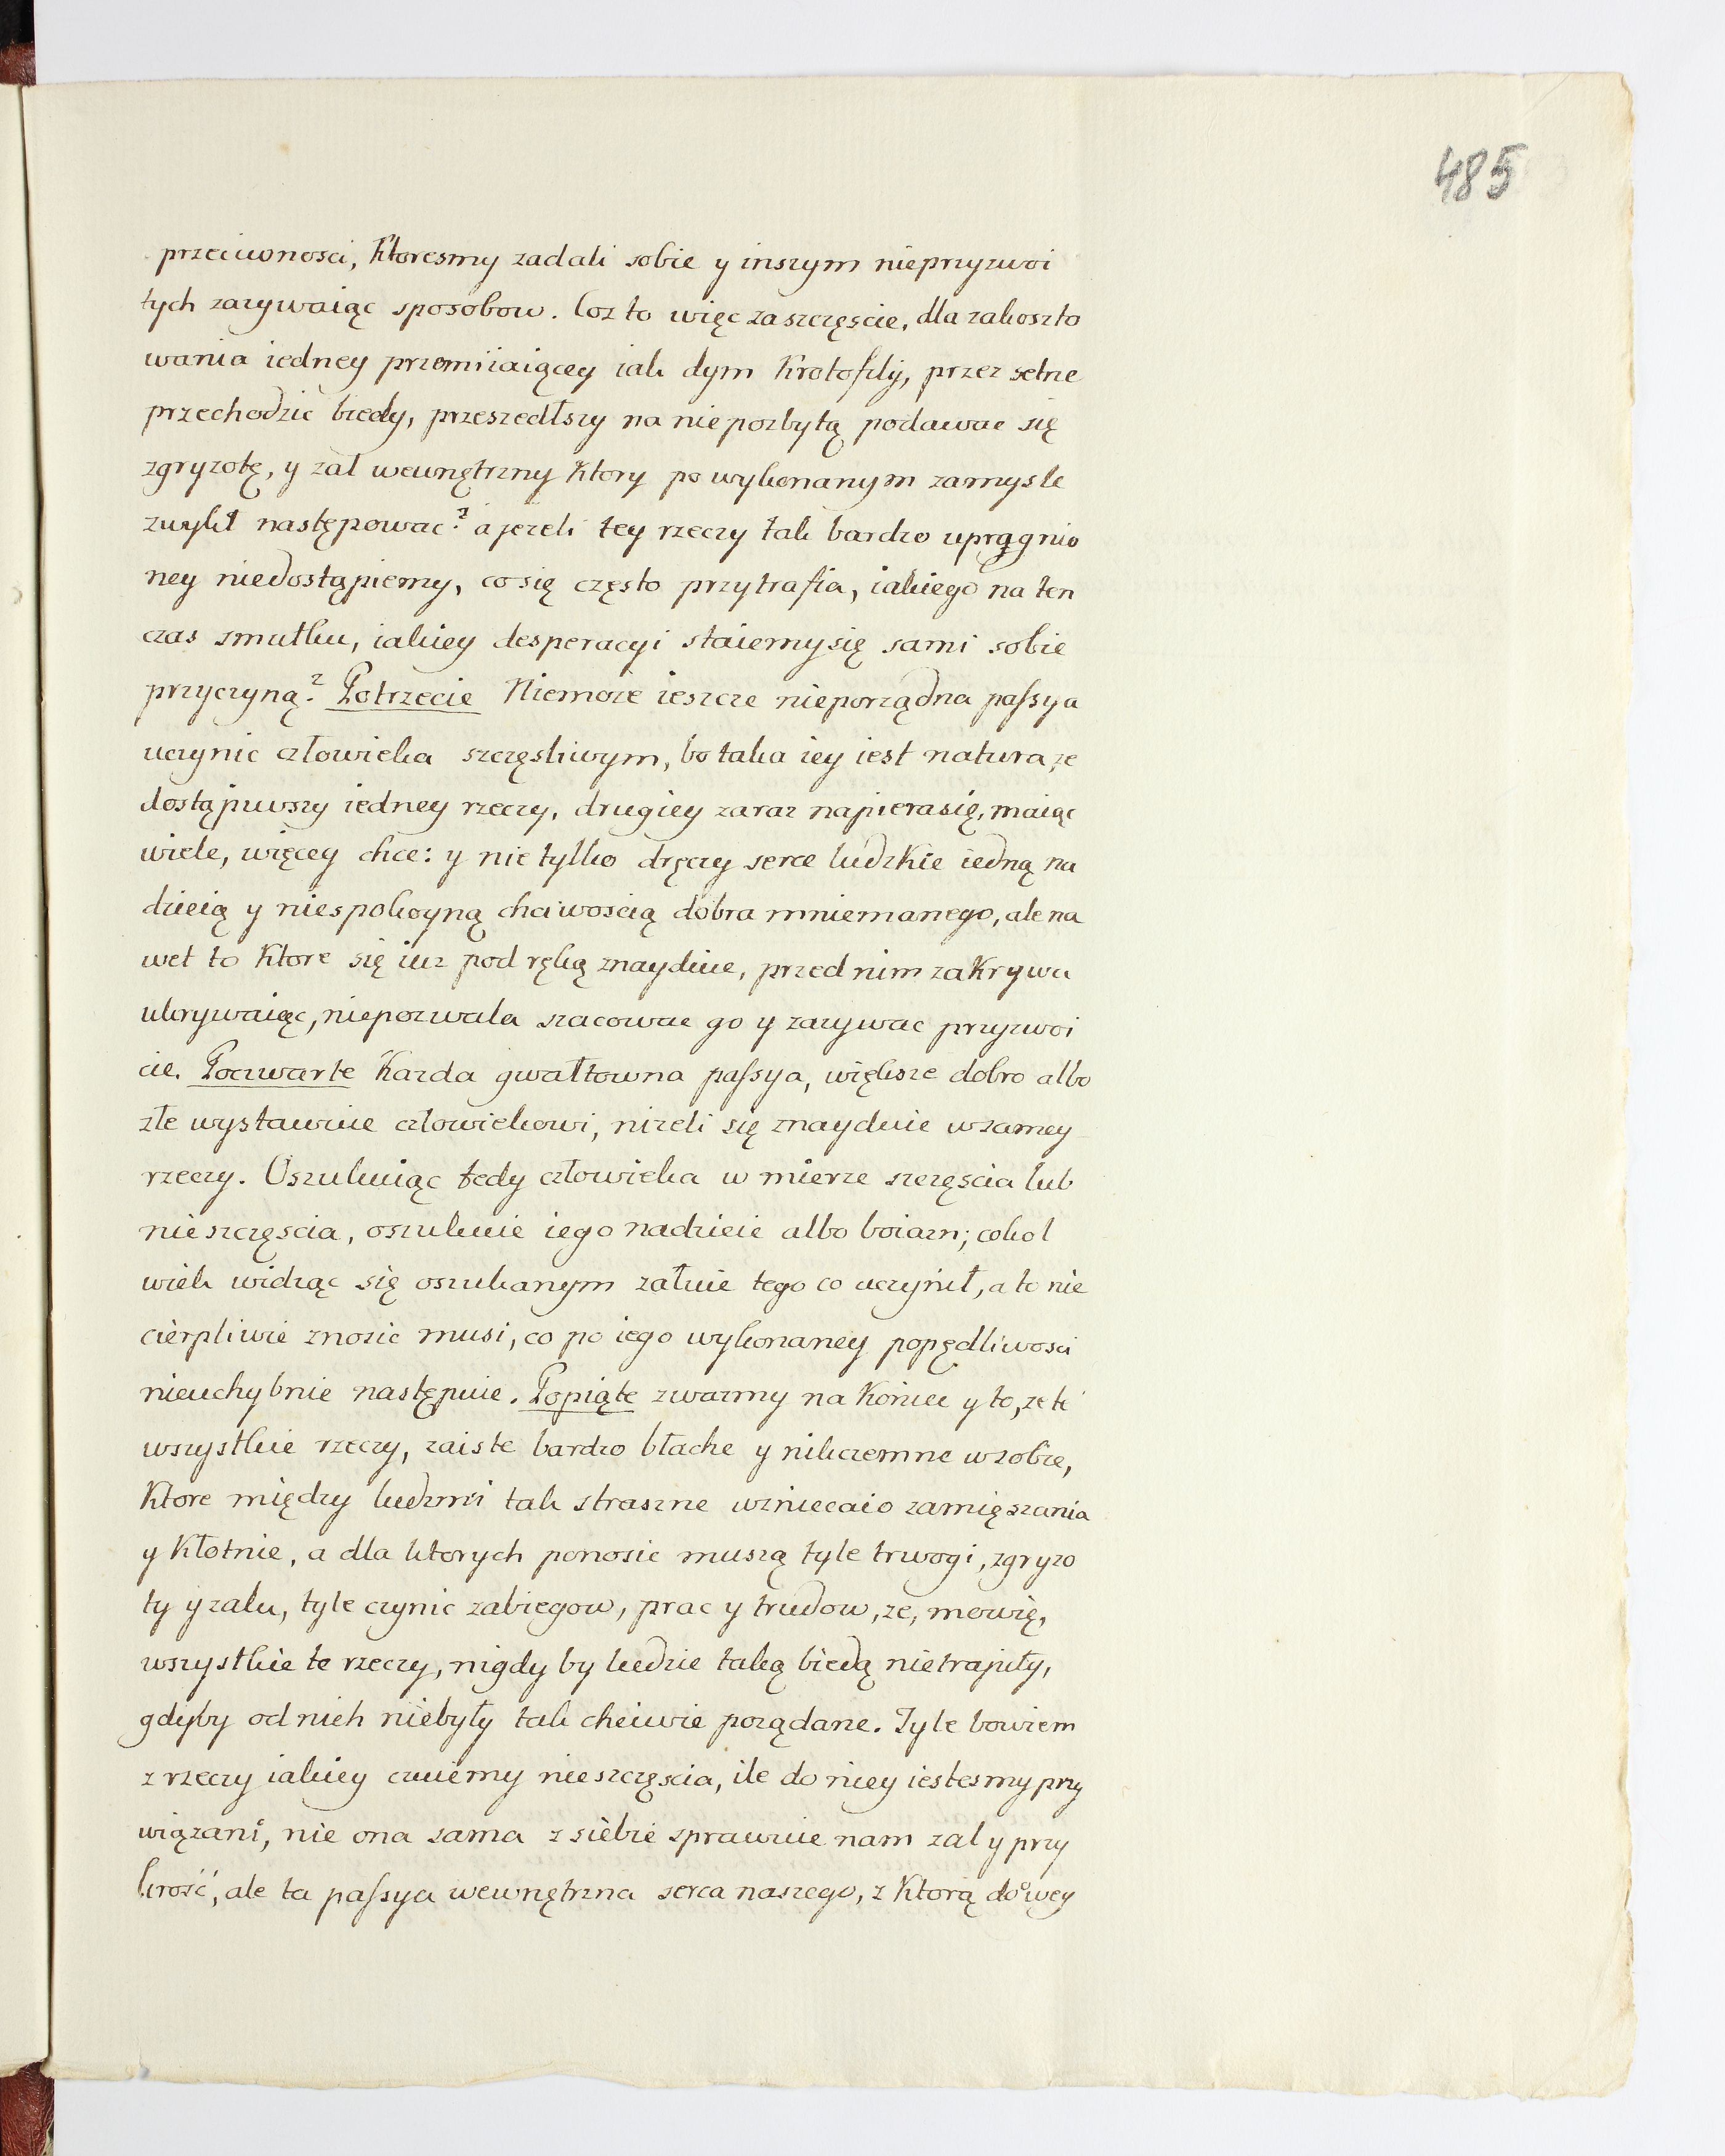 485
przeciwnosci, Ktoresmy zadali sobie y inszym nieprzyzwoi
tych zazywaiąc sposobow. Coz to więc za szczęscie, dla zakoszto
wania iedney przemiiaiącey iak dym Krotofily, przez setne
przechodzic biedy, przeszedłszy na niepozbytą podawac się
zgryzotę, y zal wewnętrzny Ktory po wykonanym zamysle
zwykł następowac? a jezeli tey rzeczy tak bardzo uprągnio
ney niedostąpiemy, co się często przytrafia, iakiego na ten
czas smutku, iakiey desperacyi staiemy się sami sobie
przyczyną? Potrzecie Niemoze ieszcze nieporządna passya
uczynic człowieka szczęsliwym, bo taka iey iest natura, ze
dostąpiwszy iedney rzeczy, drugiey zaraz napiera się, maiąc
wiele, więcey chce: y nie tylko dręczy serce ludzkie iedną na
dzieią y niespokoyną chciwoscią dobra mniemanego, ale na
wet to Ktore się iuz pod ręką znayduie, przed nim zakrywa
ukrywaiąc, niepozwala szacowac go y zazywac przyzwoi
cie. Poczwarte Kazda gwałtowna passya, większe dobro albo
złe wystawuie człowiekowi, nizeli się znayduie w samey
rzeczy. Oszukuiąc tedy człowieka w mierze szczęscia lub
nieszczęscia, oszukuie iego nadzieie albo boiazn; cokol
wiek widząc się oszukanym załuie tego co uczynił, a to nie
cierpliwie znosic musi, co po iego wykonaney popędliwosci
nieuchybnie następuie. Popiąte zwazmy na Koniec y to, ze te
wszystkie rzeczy, zaiste bardzo błache y nikczemne w sobie,
Ktore między ludzmi tak straszne wzniecaio zamięszania
y Kłotnie, a dla ktorych ponosic muszą tyle trwogi, zgryzo
ty y zalu, tyle czynic zabiegow, prac y trudow, ze, mowię,
wszystkie te rzeczy, nigdy by ludzie taką biedą nietrapiły,
gdyby od nich niebyły tak chciwie porządane. Tyle bowiem
z rzeczy iakiey czuiemy nieszczęscia, ile do niey iestesmy przy
wiązani, nie ona sama z siebie sprawuie nam zal y przy
krość, ale ta passya wewnętrzna serca naszego, z Ktorą do owey